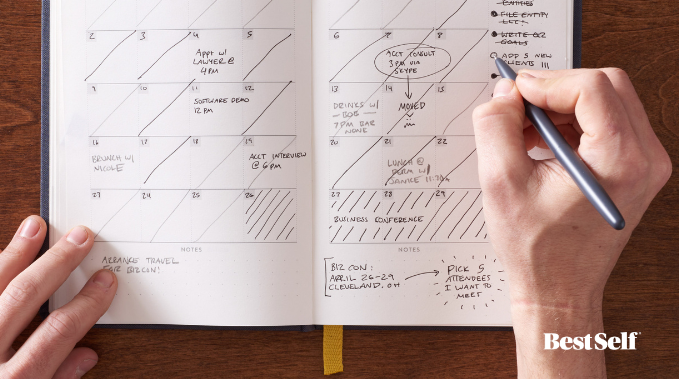 2 3 4 5
Appt w/
LAWYER @
4PM
9 10 11 12
SOFTWARE DEMO
12 PM
16 17 18 19
BRUNCH W/
NICOLE
ACCT INTERVIEW
@ 6PM
23 24 25 26
NOTES
ARRANGE TRAVEL
FOR BIZCON!
6 7 8
ACCT CONSULT
3PM VIA
SKYPE
13 14 15
DRINKS W/
BOB
7PM BAR
NONE
MOVED
20 21 22
LUNCH @
W/
27 28 29
BUSINESS CONFERENCE
NOTES
BIZ CON:
APRIL 26-29
CLEVELAND, OH
PICK 5
ATTENDEES
I WANT TO
MEET
FILE ENTITY
WRITE Q2
GOALS
ADD 5 NEW
CLIENTS !!!
BestSelf